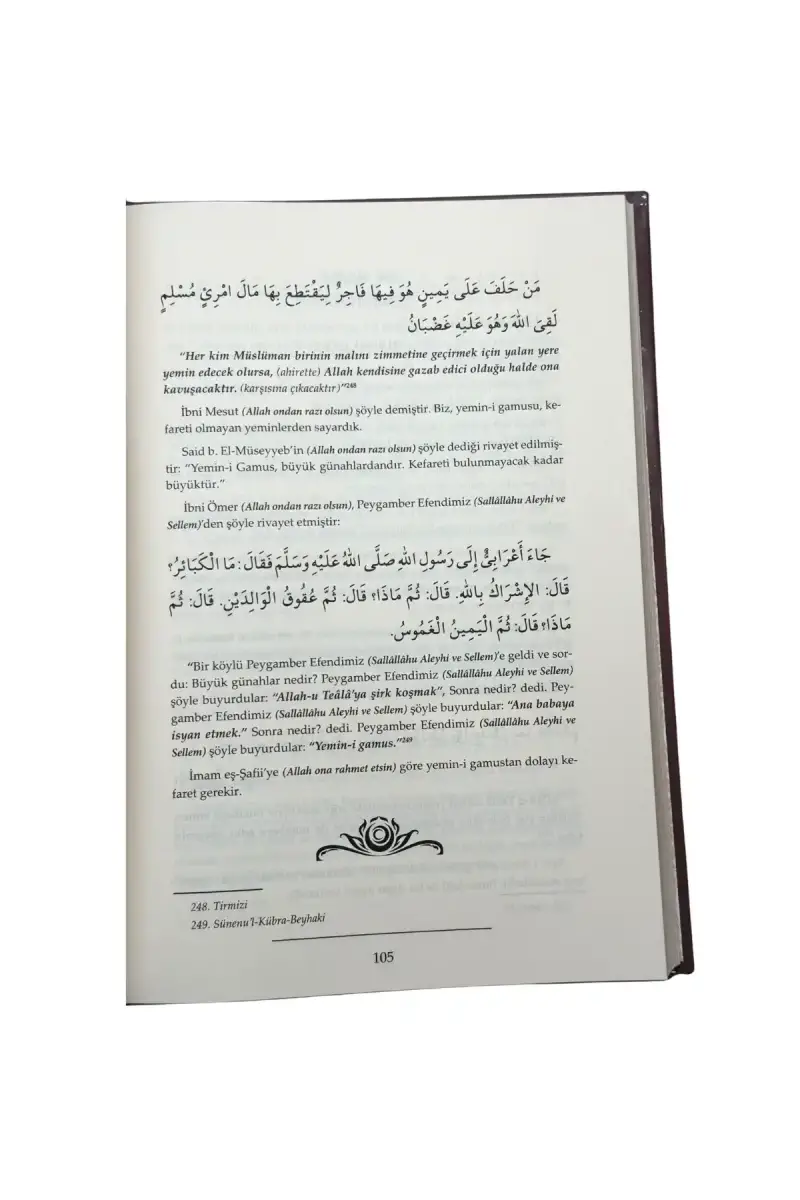 مَنْ حَلَفَ عَلَى يَمِينٍ هُوَ فِيهَا فَاجِرٌ لِيَقْتَطِعَ بِهَا مَالَ امْرِئٍ مُسْلِمٍ
لَقِىَ اللهَ وَهُوَ عَلَيْهِ غَضْبَانُ
"Her kim Müslüman birinin malını zimmetine geçirmek için yalan yere
yemin edecek olursa, (ahirette) Allah kendisine gazab edici olduğu halde ona
kavuşacaktır. (karşısına çıkacaktır)"248
İbni Mesut (Allah ondan razı olsun) şöyle demiştir. Biz, yemin-i gamusu, ke-
fareti olmayan yeminlerden sayardık.
Said b. El-Müseyyeb'in (Allah ondan razı olsun) şöyle dediği rivayet edilmiş-
tir: "Yemin-i Gamus, büyük günahlardandır. Kefareti bulunmayacak kadar
büyüktür."
İbni Ömer (Allah ondan razı olsun), Peygamber Efendimiz (Sallâllâhu Aleyhi ve
Sellem)'den şöyle rivayet etmiştir:
جَاءَ أَعْرَابِيٌّ إِلَى رَسُولِ اللهِ صَلَّى اللهُ عَلَيْهِ وَسَلَّمَ فَقَالَ: مَا الْكَبَائِرُ؟
قَالَ: الإِشْرَاكُ بِاللهِ. قَالَ: ثُمَّ مَاذَا؟ قَالَ: ثُمَّ عُقُوقُ الْوَالِدَيْنِ. قَالَ: ثُمَّ
مَاذَا؟ قَالَ: ثُمَّ الْيَمِينُ الْغَمُوسُ.
"Bir köylü Peygamber Efendimiz (Sallâllâhu Aleyhi ve Sellem)'e geldi ve sor-
du: Büyük günahlar nedir? Peygamber Efendimiz (Sallâllâhu Aleyhi ve Sellem)
şöyle buyurdular: "Allah-u Teâlâ'ya şirk koşmak", Sonra nedir? dedi. Pey-
gamber Efendimiz (Sallâllâhu Aleyhi ve Sellem) şöyle buyurdular: "Ana babaya
isyan etmek." Sonra nedir? dedi. Peygamber Efendimiz (Sallâllâhu Aleyhi ve
Sellem) şöyle buyurdular: "Yemin-i gamus."249
İmam eş-Şafii'ye (Allah ona rahmet etsin) göre yemin-i gamustan dolayı ke-
faret gerekir.
248. Tirmizi
249. Sünenu'l-Kübra-Beyhaki
105